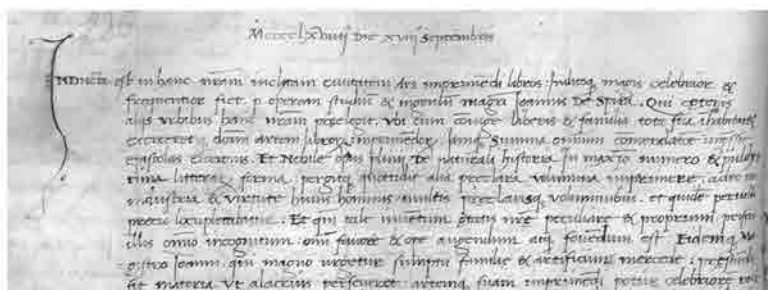 Mcccclxviiij Die xviij Septembris
INDucta est in hanc nram inclytam ciuitatem Ars imprimendi libros: indiesq magis celebrior &
frequentior fiet p operam studium & Ingenium magri Ioannis De Spira. Qui ceteris
alijs vrbibus hanc nram prelegit. Vbi cum coniuge liberis & familia tota sua inhabitaret
exerceretq dictam artem libror imprimendor. Iamq Summa omnium comendatione impressit
epistolas ciceronis. Et Nobile opus plinij De naturali historia in maxio numero & pulcher
rima litterar forma. pergitq quottidie alia preclara volumina imprimere. adeo ut
industria & virtute huius hominis multis preclarisq voluminibus. et quidem peruili
precio locupletabitur. Et qm tale inuentum etatis nre peculiare & proprium priscis
illis omnio incognitum. omi fauore & ope augendum atq fouendum est. Eidemq Ma
gistro Ioanni. qui magno urgetur sumptu familie & artificum mercede. prestanda
sit materia Vt alacrius perseueret. artemq suam imprimendi potius celebriore